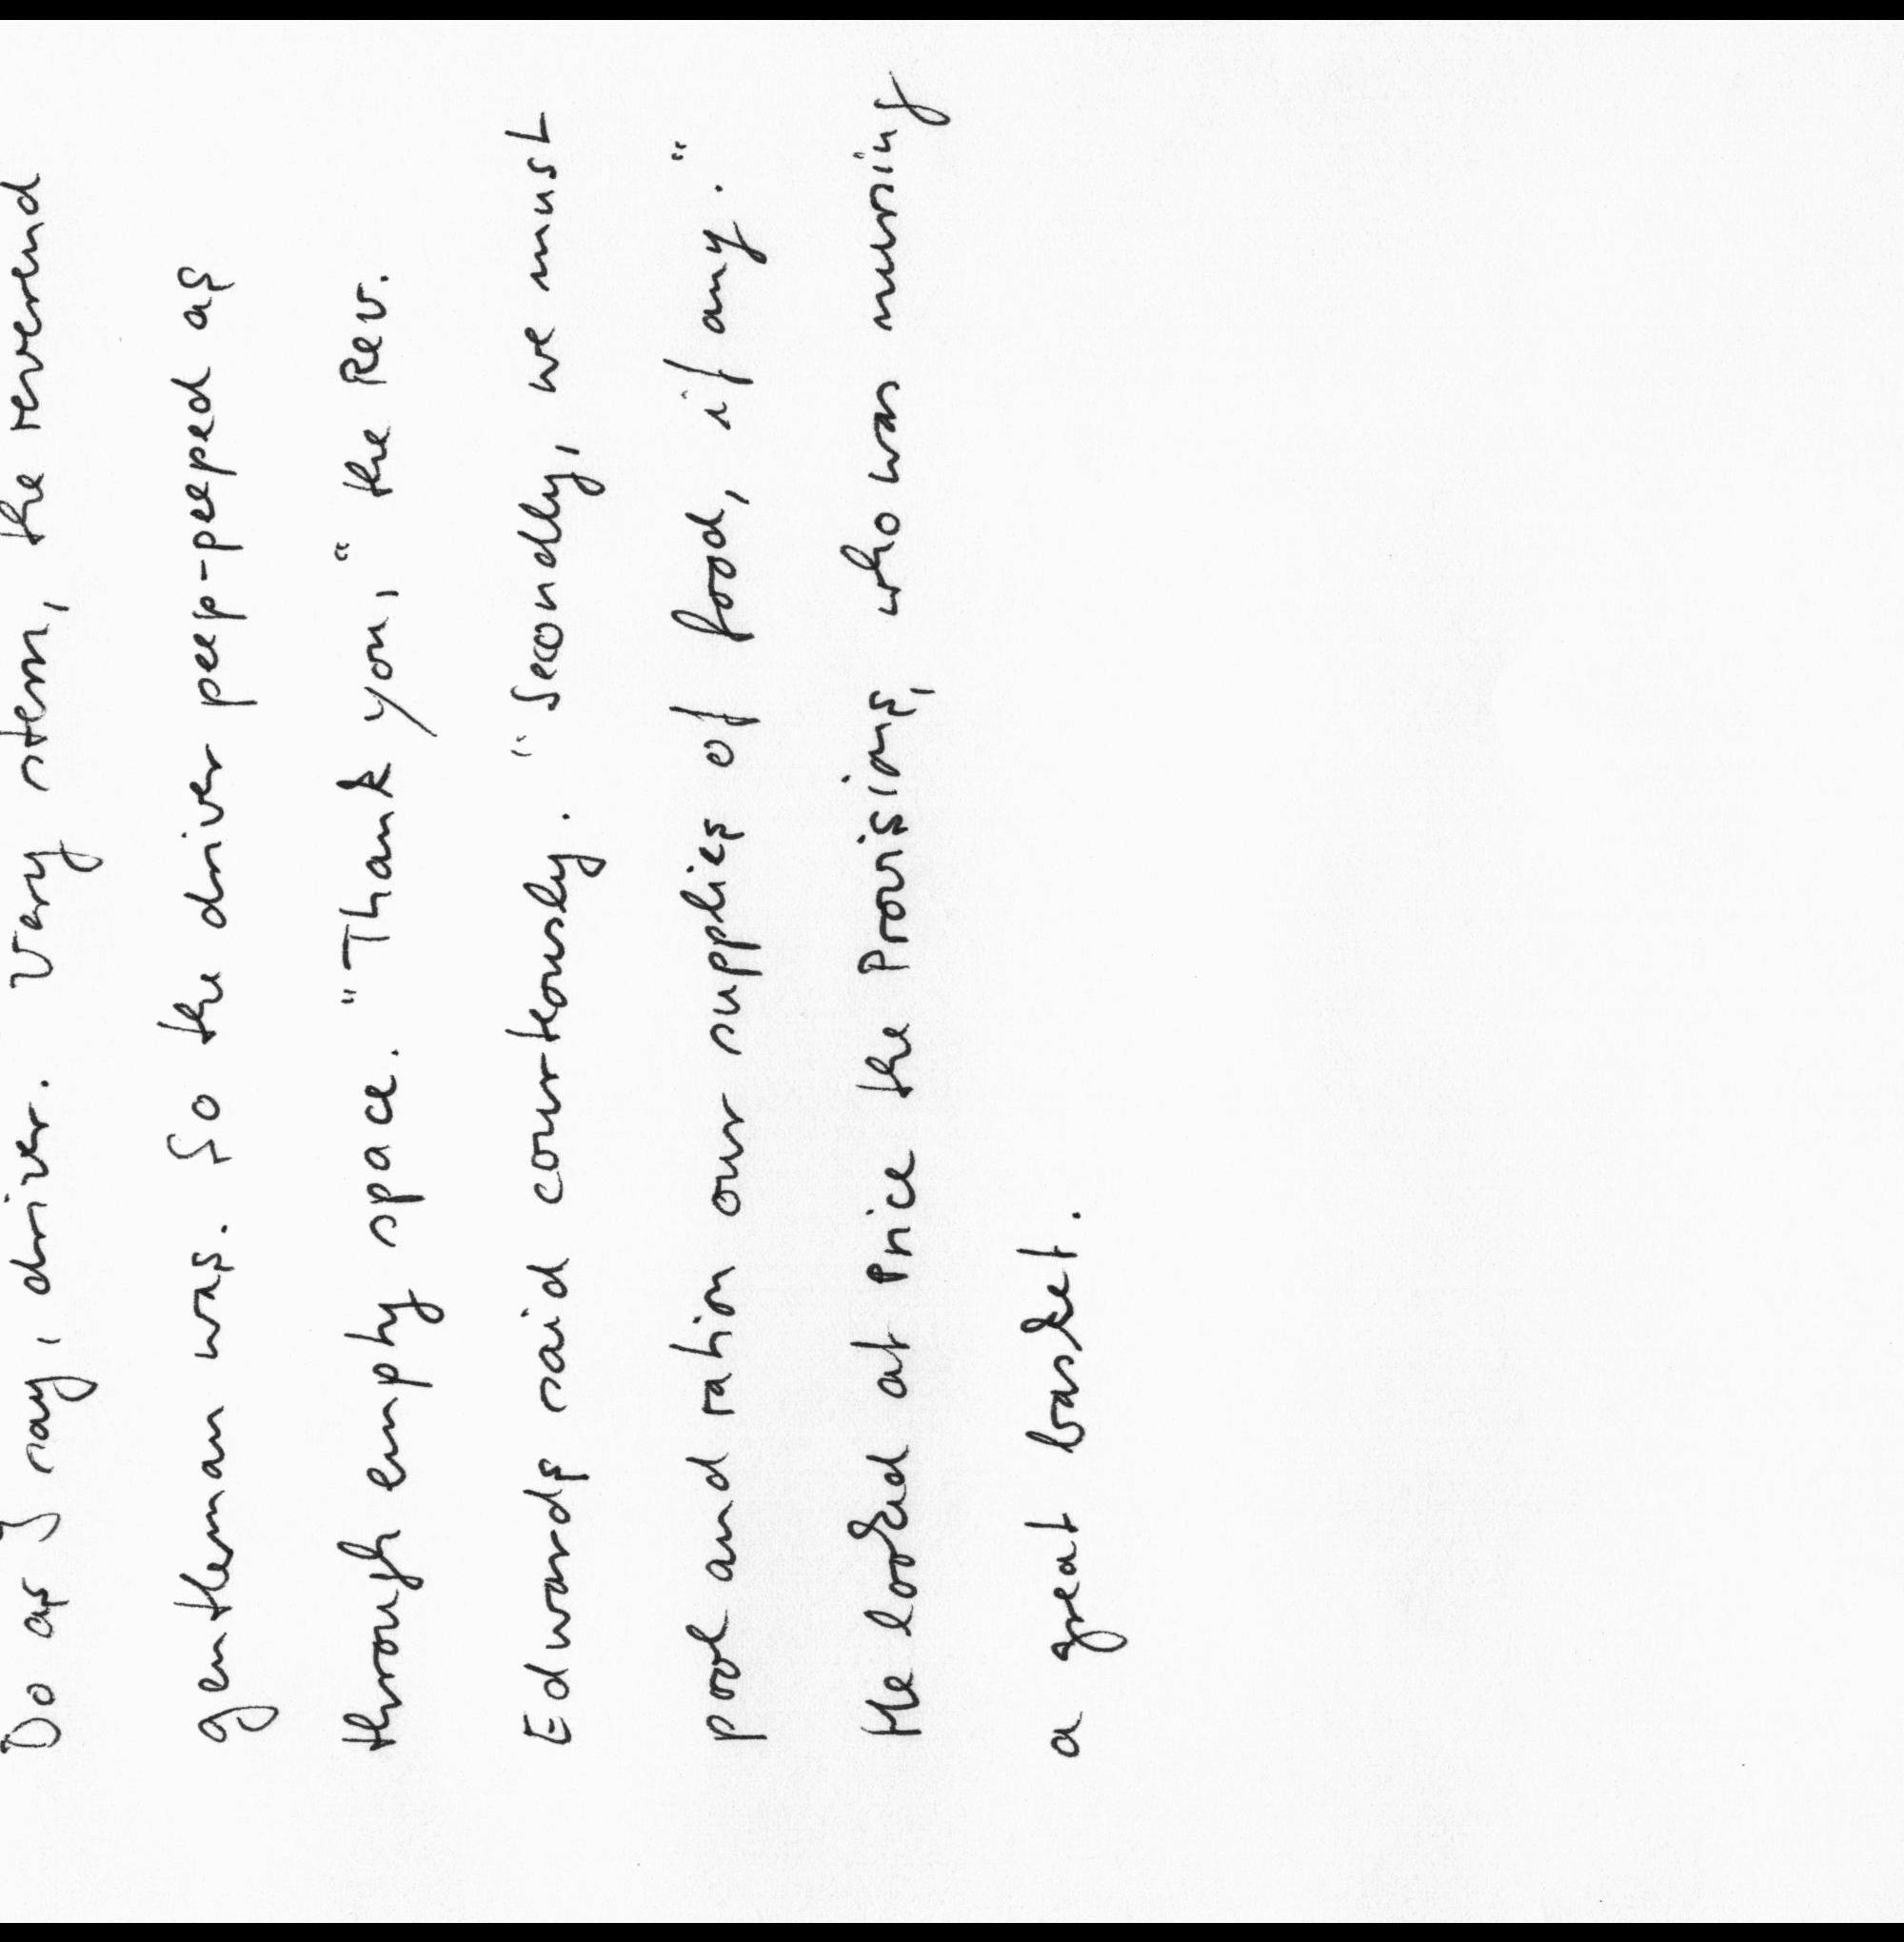 Do as I say, driver. Very stern, the reverend
gentleman was. So the driver peep-peeped as
through empty space. "Thank you," the Rev.
Edwards said courteously. "Secondly, we must
pool and ration our supplies of food, if any."
He looked at Price the Provisions, who was nursing
a great basket.